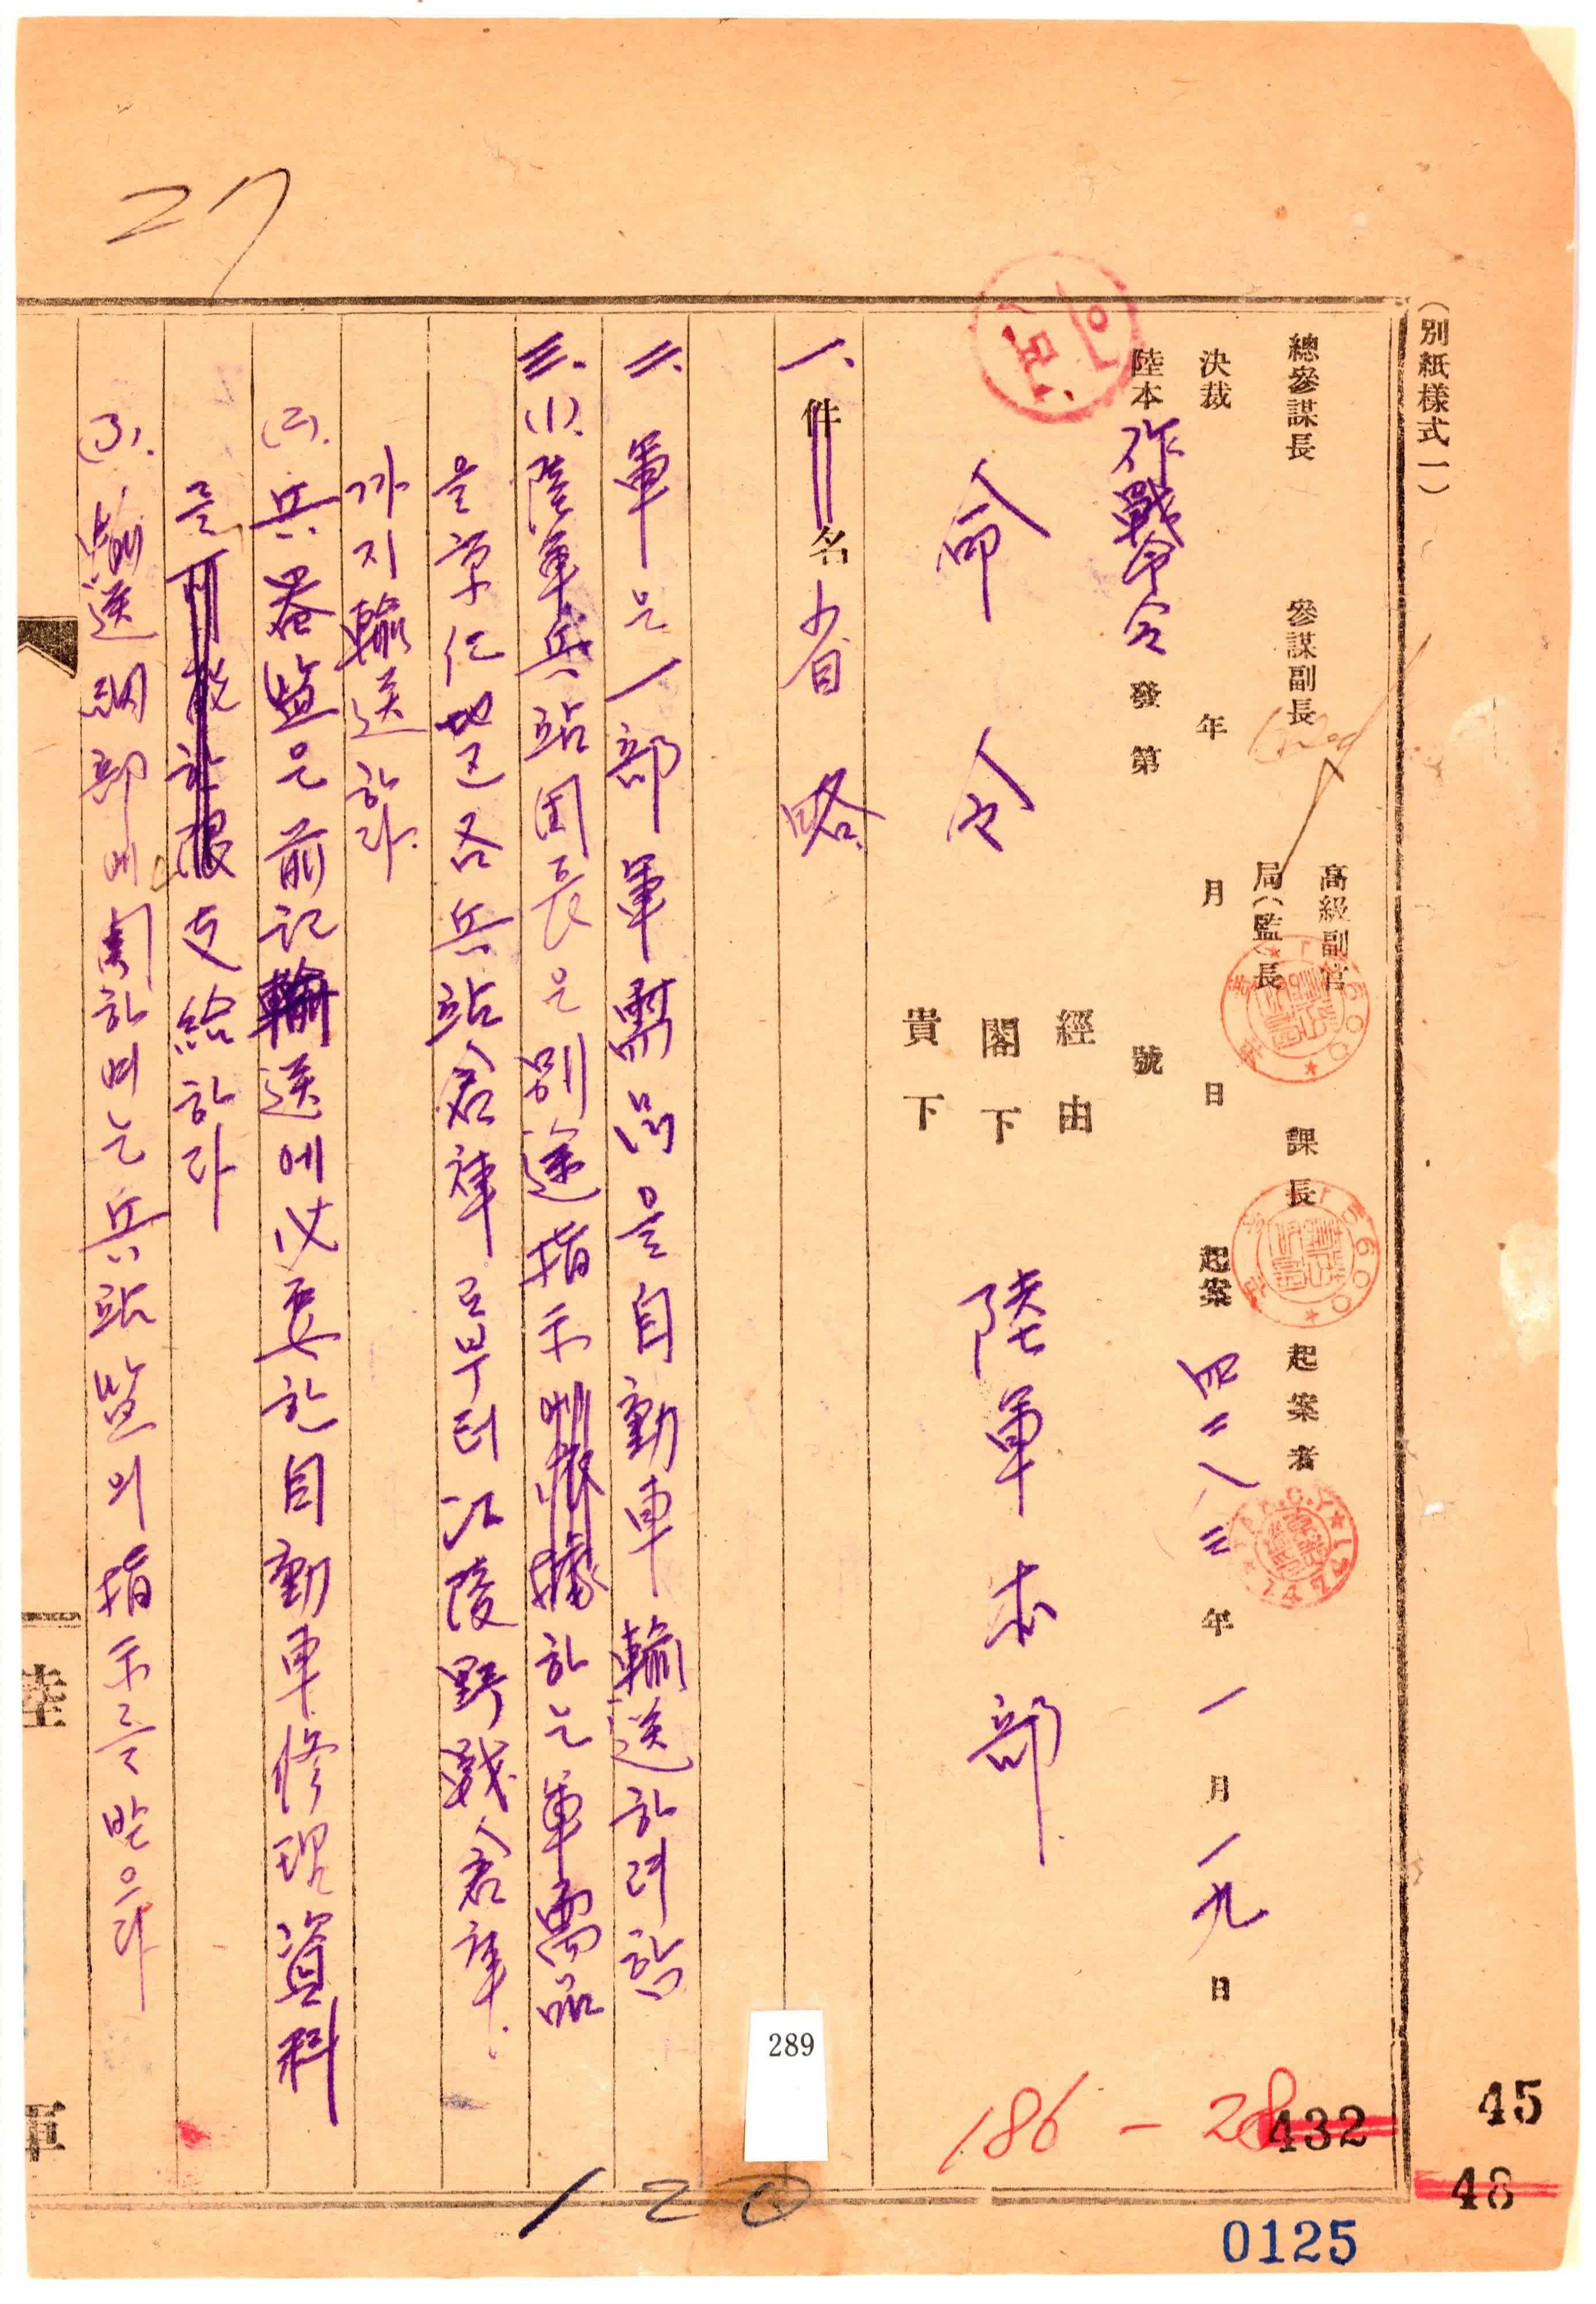 (別紙樣式一)
總參謀長 參謀副長 高級副官 局(監)長 課長 起案者
決裁 年 月 日 起案 四二八三年 一月 一九日
陸本 作戰命令 發 第 號
經由
閣下
貴下
命令 陸軍本部
一、件名 省略
二、軍은 一部 軍需品을 自動車 輸送하려 함
三、(1). 陸軍兵站団長은 別途 指示 하는 軍需品
을 京仁地区 各 兵站 倉庫로부터 江陵野戰倉庫
까지 輸送하라.
(2). 兵器監은 前記 輸送에 必要한 自動車 修理資料
를 支給하라
(3). 輸送細部에 関하여는 兵站監의 指示를 받으라
陸
軍
27
289
186-28
432
45
48
120
0125